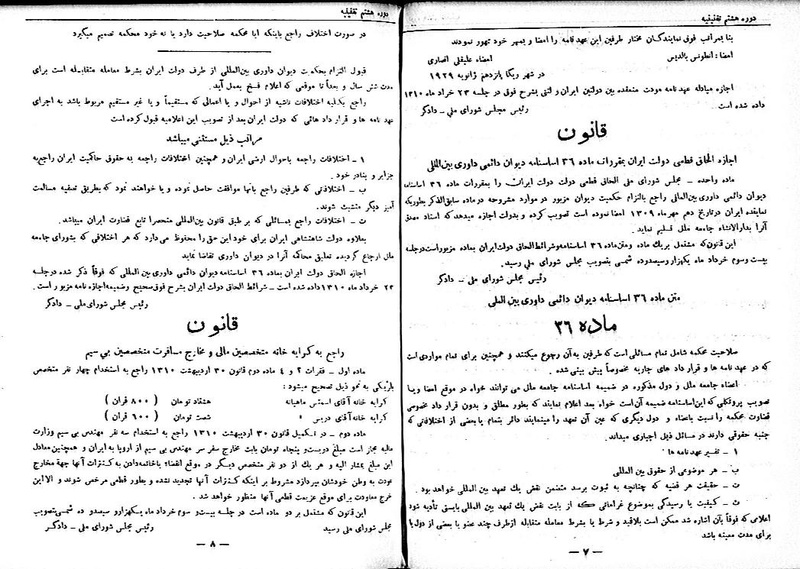 دوره هشتم تقنینیه
بنا بمراتب فوق نمایندگان مختار طرفین این عهدنامه را امضا و بمهر خود ممهور نمودند
امضا: انطونس بالدیس امضاء علیقلی انصاری
در شهر ریگا یازدهم ژانویه ۱۹۲۹
اجازه مبادله عهد نامه مودت منعقده بین دولتین ایران و لتنی بشرح فوق در جلسه ۲۳ خرداد ماه ۱۳۱۰
داده شده است رئیس مجلس شورای ملی – دادگر
قانون
اجازه الحاق قطعی دولت ایران بمقررات ماده ۳۶ اساسنامه دیوان دائمی داوری بین‌المللی
ماده واحده – مجلس شورای ملی الحاق قطعی دولت ایران را بمقررات ماده ۳۶ اساسنامه
دیوان دائمی داوری بین المللی راجع بالتزام حکمیت دیوان مزبور در موارد مشروحه در ماده سابق‌الذکر بطوریکه
نماینده ایران در تاریخ دهم مهر ماه ۱۳۰۹ امضا نموده است تصویب کرده و بدولت اجازه میدهد که اسناد مصدق
آنرا بدارالانشاء جامعه ملل تسلیم نماید.
این قانون که مشتمل بر یک ماده و متن ماده ۳۶ اساسنامه و شرائط الحاق دولت ایران بماده مزبور است در جلسه
بیست و سوم خرداد ماه یکهزار و سیصد و ده شمسی بتصویب مجلس شورای ملی رسید.
رئیس مجلس شورای ملی – دادگر
متن ماده ۳۶ اساسنامه دیوان دائمی داوری بین المللی
ماده ۳۶
صلاحیت محکمه شامل تمام مسائلی است که طرفین به آن رجوع میکنند و همچنین برای تمام مواردی است
که در عهد نامه ها و قرار داد های جاریه مخصوصاً پیش بینی شده
اعضاء جامعه ملل و دول مذکوره در ضمیمه اساسنامه جامعه ملل می توانند خواه در موقع امضا و یا
تصویب پروتکلی که این اساسنامه ضمیمه آن است خواه بعد اعلام نمایند که بطور مطلق و بدون قرار داد مخصوصی
قضاوت محکمه را نسبت باعضاء و دول دیگری که عین آن تعهد را مینمایند دائر بتمام یا بعضی از اختلافاتی که
جنبه حقوقی دارند در مسائل ذیل اجباری میداند
۱ – تفسیر عهدنامه ها
ب – هر موضوعی از حقوق بین المللی
ت – حقیقت هر قضیه که چنانچه به ثبوت برسد متضمن نقض یک تعهد بین المللی خواهد بود.
ث – کیفیت یا رسیدگی بموضوع غرامتی که از بابت نقض یک تعهد بین المللی بایستی تأدیه شود
اعلامی که فوقاً بآن اشاره شد ممکن است بلاقید و شرط یا بشرط معامله متقابله از طرف چند عضو یا بعضی از دول یا
برای مدت معینه باشد
– ۷ –
دوره هشتم تقنینیه
در صورت اختلاف راجع باینکه آیا محکمه صلاحیت دارد یا نه خود محکمه تصمیم میگیرد
قبول التزام بحکمیت دیوان داوری بین‌المللی از طرف دولت ایران بشرط معامله متقابله است برای
مدت شش سال و بعداً تا موقعی که اعلام فسخ بعمل آید.
راجع بکلیه اختلافات ناشیه از احوال و یا اعمالی که مستقیماً و یا غیر مستقیم مربوط باشد به اجرای
عهد نامه ها و قرار داد هائی که دولت ایران بعد از تصویب این اعلامیه قبول کرده است
مراتب ذیل مستثنی میباشد
۱ – اختلافات راجعه باحوال ارضی ایران و همچنین اختلافات راجعه به حقوق حاکمیت ایران راجع به
جزایر و بنادر خود.
ب – اختلافاتی که طرفین راجع بآنها موافقت حاصل نموده و یا خواهند نمود که بطریق تصفیه مسالمت
آمیز دیگر متشبث شوند.
ت – اختلافات راجع بمسائلی که بر طبق قانون بین‌المللی منحصراً تابع قضاوت ایران میباشد.
بعلاوه دولت شاهنشاهی ایران برای خود این حق را محفوظ میدارد که هر اختلافی که بشورای جامعه
ملل ارجاع گردیده تعلیق محاکمه آنرا در دیوان داوری تقاضا نماید
اجازه الحاق دولت ایران بماده ۳۶ اساسنامه دیوان دائمی داوری بین المللی که فوقاً ذکر شده در جلسه
۲۳ خرداد ماه ۱۳۱۰ داده شده است – شرائط الحاق دولت ایران بشرح فوق صحیح و ضمیمه اجازه نامه مزبور است.
رئیس مجلس شورای ملی – دادگر
قانون
راجع به کرایه خانه متخصصین مالی و مخارج مسافرت متخصصین بی سیم
ماده اول – فقرات ۲ و ۴ ماده دوم قانون ۳۰ اردیبهشت ۱۳۱۰ راجع به استخدام چهار نفر متخصص
بلژیکی به نحو ذیل تصحیح میشود :
کرایه خانه آقای اسمتس ماهیانه هشتاد تومان ( ۸۰۰ قران )
کرایه خانه آقای دربس » شصت تومان ( ۶۰۰ قران )
ماده دوم – در تکمیل قانون ۳۰ اردیبهشت ۱۳۱۰ راجع به استخدام سه نفر مهندس بی سیم وزارت
مالیه مجاز است مبلغ دویست و پنجاه تومان بابت مخارج سفر سر مهندس بی سیم از اروپا به ایران و همچنین معادل
این مبلغ بمشار الیه و هر یک از دو نفر متخصص دیگر در موقع انقضاء یا خاتمه دادن به کنترات آنها جهة مخارج
عودت به وطن خودشان بپردازد مشروط بر اینکه کنترات آنها تجدید نشده و بطور قطعی مرخص شوند و الا این
خرج معاودت برای موقع عزیمت قطعی آنها منظور خواهد شد.
این قانون که مشتمل بر دو ماده است در جلسه بیست و سوم خرداد ماه یکهزار و سیصد و ده شمسی بتصویب
مجلس شورای ملی رسید رئیس مجلس شورای ملی – دادگر
– ۸ –